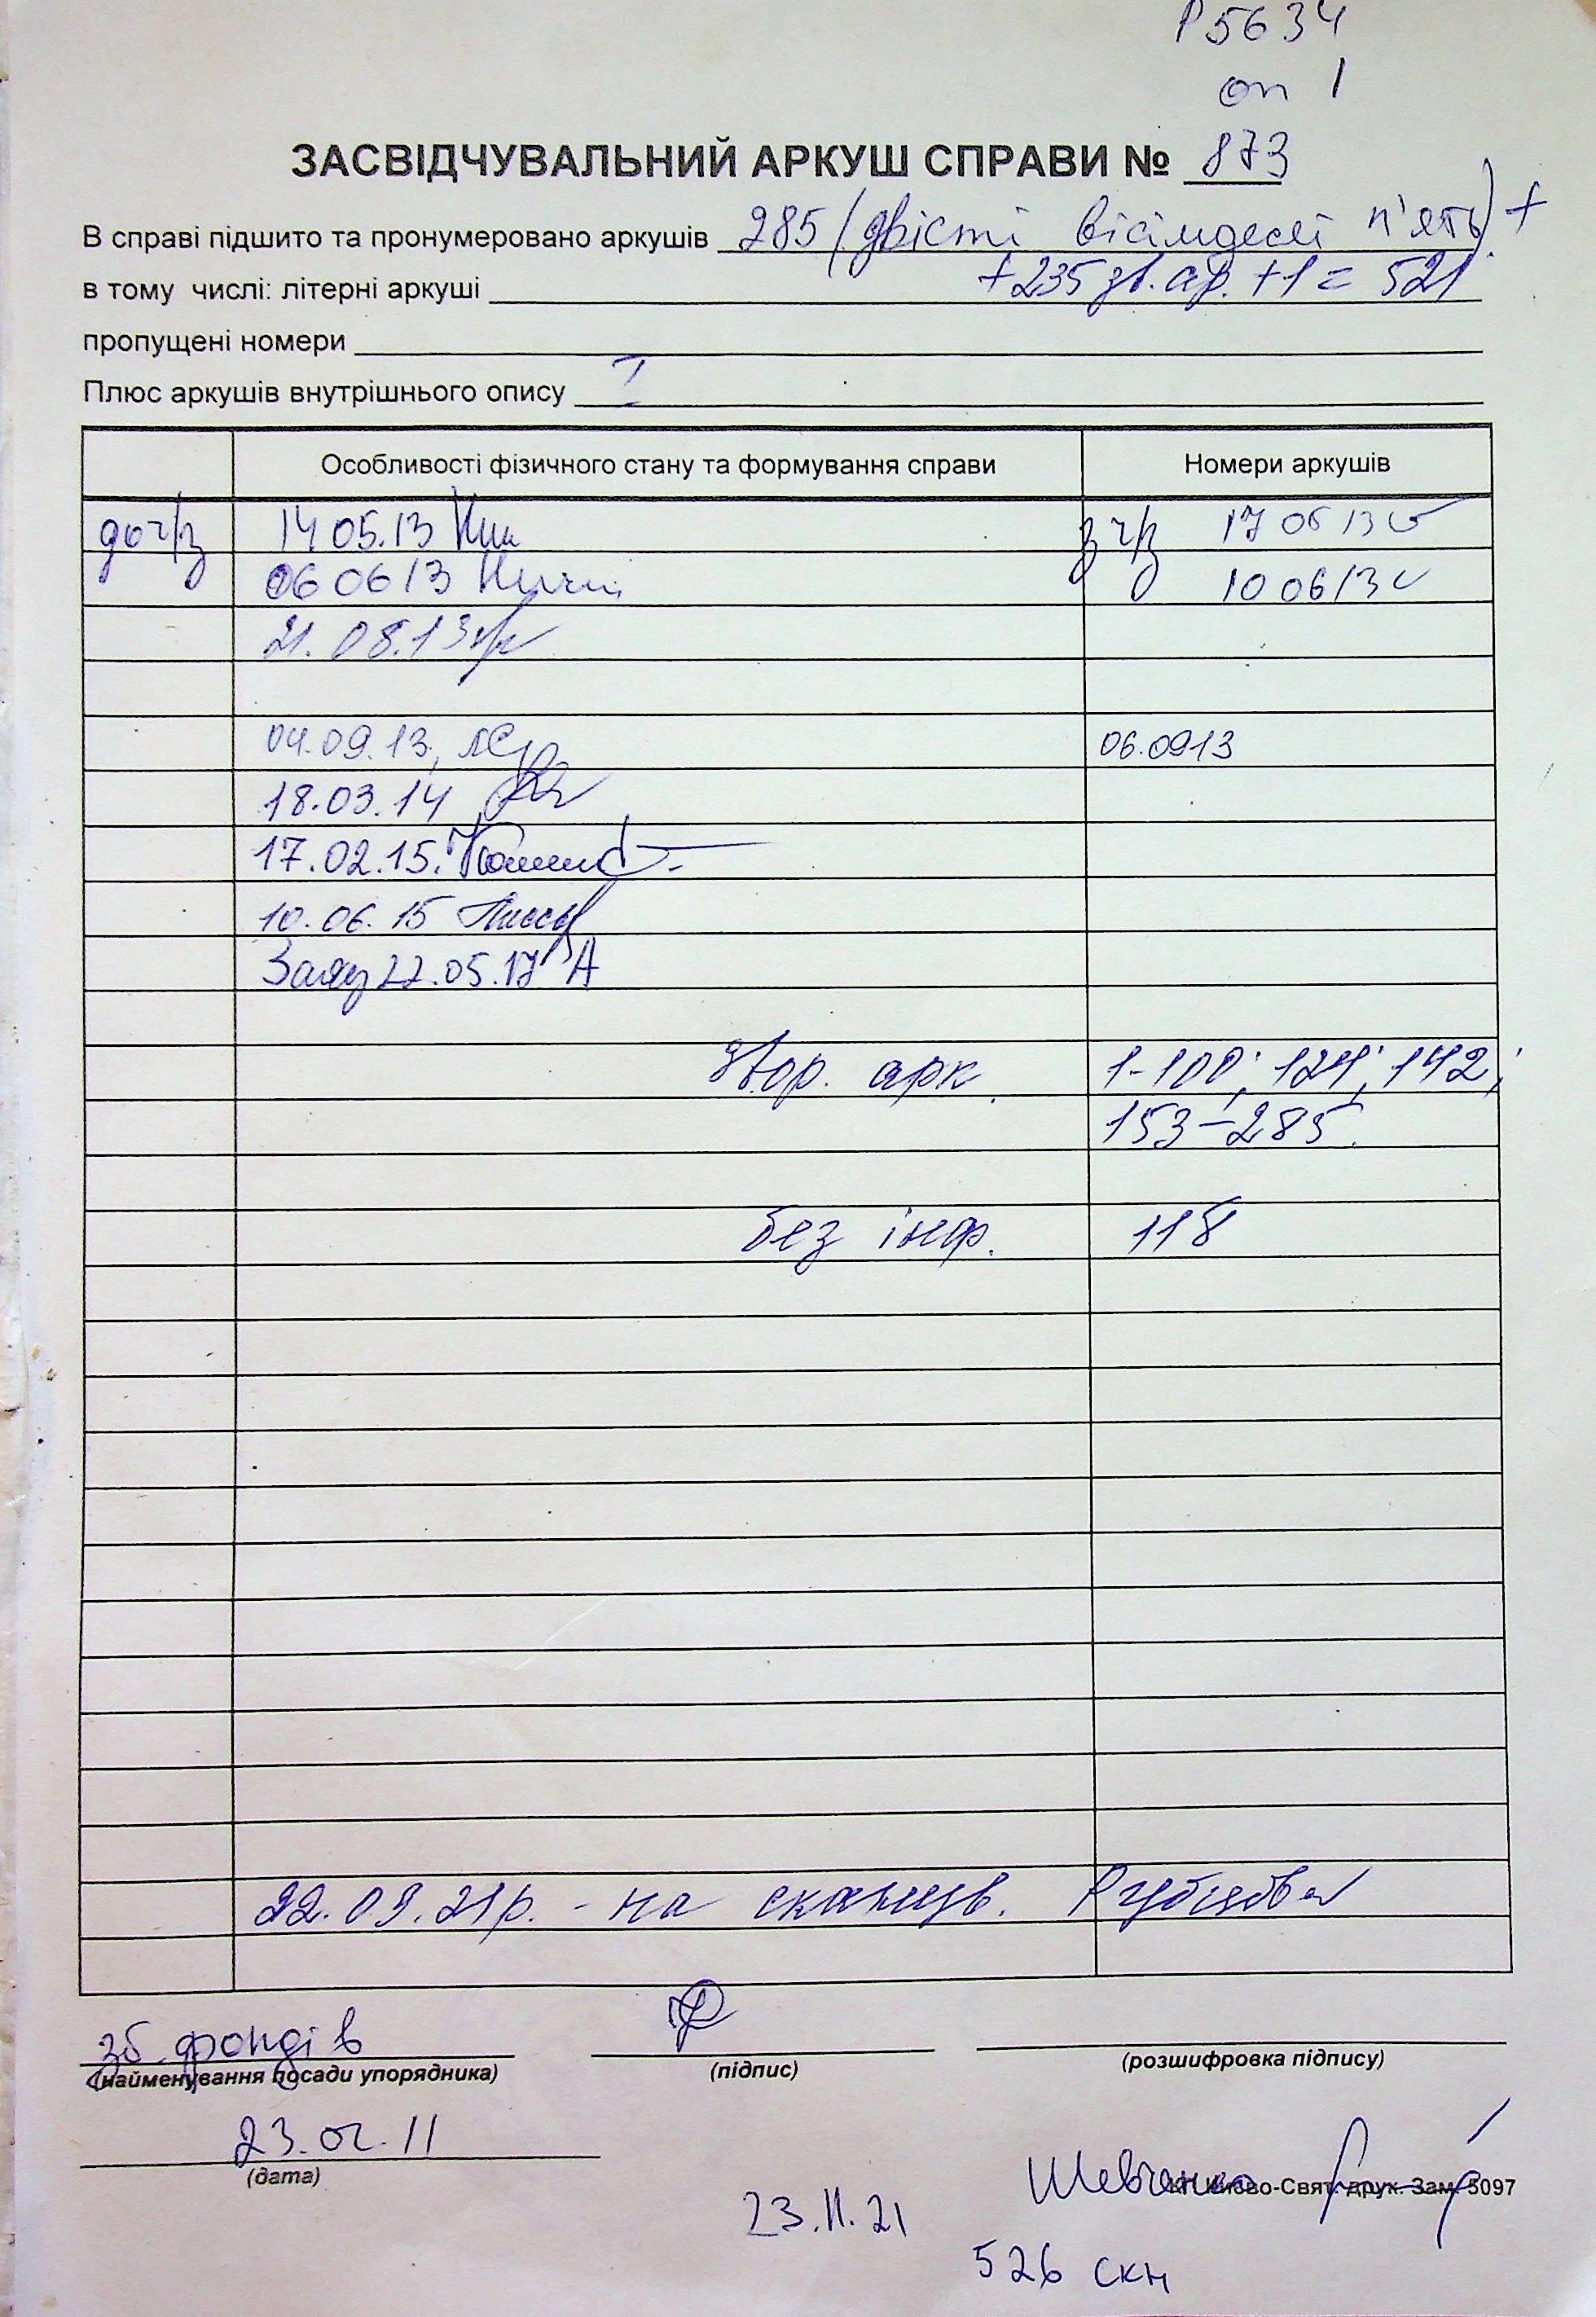 Р5634
оп 1
ЗАСВІДЧУВАЛЬНИЙ АРКУШ СПРАВИ № 873
В справі підшито та пронумеровано аркушів 285 (двісті вісімдесят п'ять) +
в тому числі: літерні аркуші +235 зв. ар. +1 = 521
пропущені номери
Плюс аркушів внутрішнього опису 1
Особливості фізичного стану та формування справи Номери аркушів
до ч/з 14 05.13 з ч/з 17 05 13
06 06 13 10 06 13
21.08.13
04.09.13, 06.0913
18.03.14
17.02.15.
10.06.15
22.05.17 А
звор. арк. 1-100; 124; 142;
153-285.
без інф. 118
22.09.21р. - на сканув. Рубцова
зб. фондів
(найменування посади упорядника) (підпис) (розшифровка підпису)
23.02.11
(дата)
Шевченко
КП Києво-Свят. друк. Зам. 5097
23.11.21
526 скн